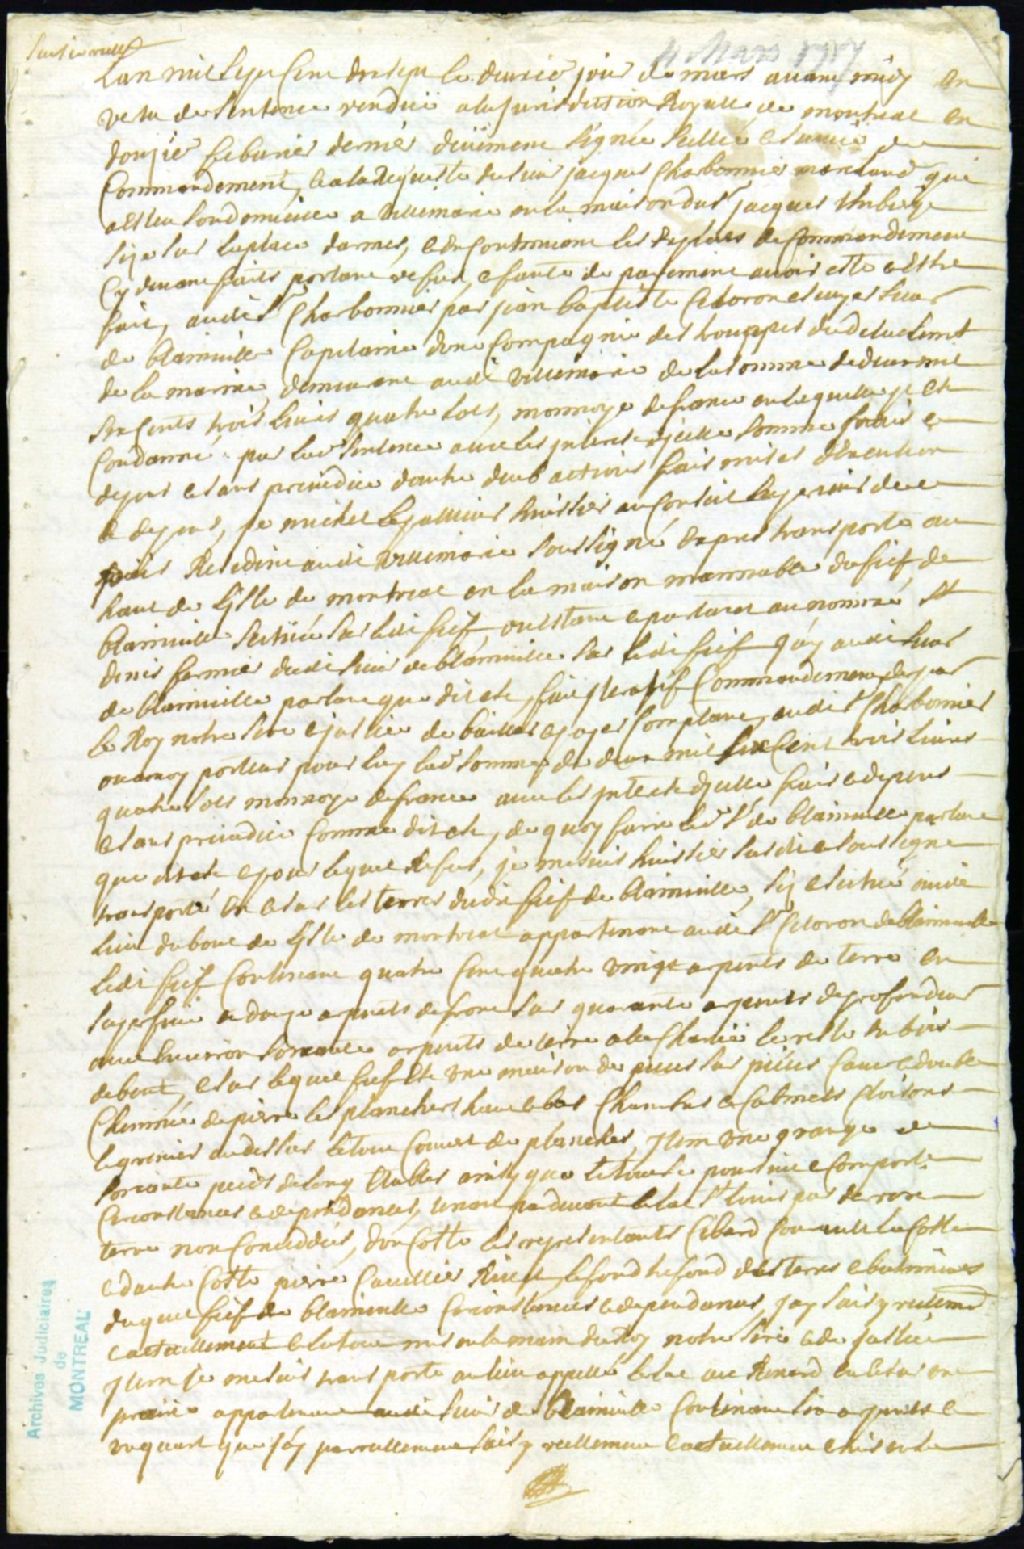 4 Mars 1717
Lan mil sept Cent dix sept le deuxie jour de mars auant midy en
vertu de sentence rendüe a la Jurisdiction Royalle de montreal en
douzie feburier dernier deüement signée sellée et
Commandement, et a la Requeste du sieur jacques Charbonnier marchand qui
a esleu son domicille a villemarie en la maison du Sr jacques
size sur la place darmes, et en Continuant les Exploits de Commandement
Cy deuant faits portant refus, et faute de payement auoir esté
fait, audit Sr Charbonnier par jean baptiste Celoron escuyer sieur
de blainuille Capitaine dune Compagnie des trouppes du detachemt
de la marine, demeurant audit villemarie de la somme de deux mil
six Cents trois liures quatre sols, monnoye de france en laquelle il est
Condanné par lad. sentence auec les interest dicelle somme frais et
depens et sans preiudice dautre deub actions frais mises dexecution
et depens, je michel lepallieur huissier au Conseil superieur de ce
païs Residant audit villemarie soussigné Expres transporté au
haut de lisle de montreal en la maison mannable du fief de
blainuille scituée sur ledit fief, ou estant et parlant au nommé St
denis fermier dudit sieur de blainuille sur ledit fief jay audit sieur
de blainuille parlant que dit est, fait iteratif Commandement de par
le Roy notre sire et justice de bailler et payer Comptant, audit Sr Charbonnier
ou a moy porteur pour luy lad. somme de deux mil six Cent trois liures
quatre sols monnoye de france auec les interest dicelle frais et depens
et sans preiudice Comme dit est, de quoy faire led. Sr de blainuille parlant
que dit est et pour lequel Refus, je me suis huissier susdit et soussigné
transporté en et sur les terres dudit fief de blainuille, sis et scitué audit
lieu du bout de lisle de montreal appartenant audit Sr Celoron de blainuille
ledit fief Contenant quatre Cent quatre vingt arpents de terre en
superficie a douze arpents de front sur quarante arpents de profondeur
auec enuiron soixante arpents de terre a la Charüe le reste en bois
debout, et sur lequel fief est une maison de pieces sur pieces Caue et double
Cheminée de pierre les planchers haut et bas Chambres et Cabinets Cloisons
le grenier au dessus le tout Couuert de planches, Item une grange de
soixante pieds de long Estables ainsy que le tout se poursuit et Comporte
Circonstances et dependances, tenant par deuant le lac St louis par derriere
terre non Concedées, dun Costé les representants Cibard Courault la Coste
et dautre Costé pierre Cauellier, le fond trefond des terres et batimens
duquel fief de blainuille Circonstances et dependances, jay saisy reellemt
et actuellement et le tout mis en la main du Roy notre sire et de justice
Item je me suis transporté au lieu appellé le lac au Renard en et sur une
prairie appartenant audit sieur de blainuille Contenant six arpents et
un quart que jay pareillement saisy reellement et actuellement et mis en la
Archives Judiciaires
de
MONTREAL